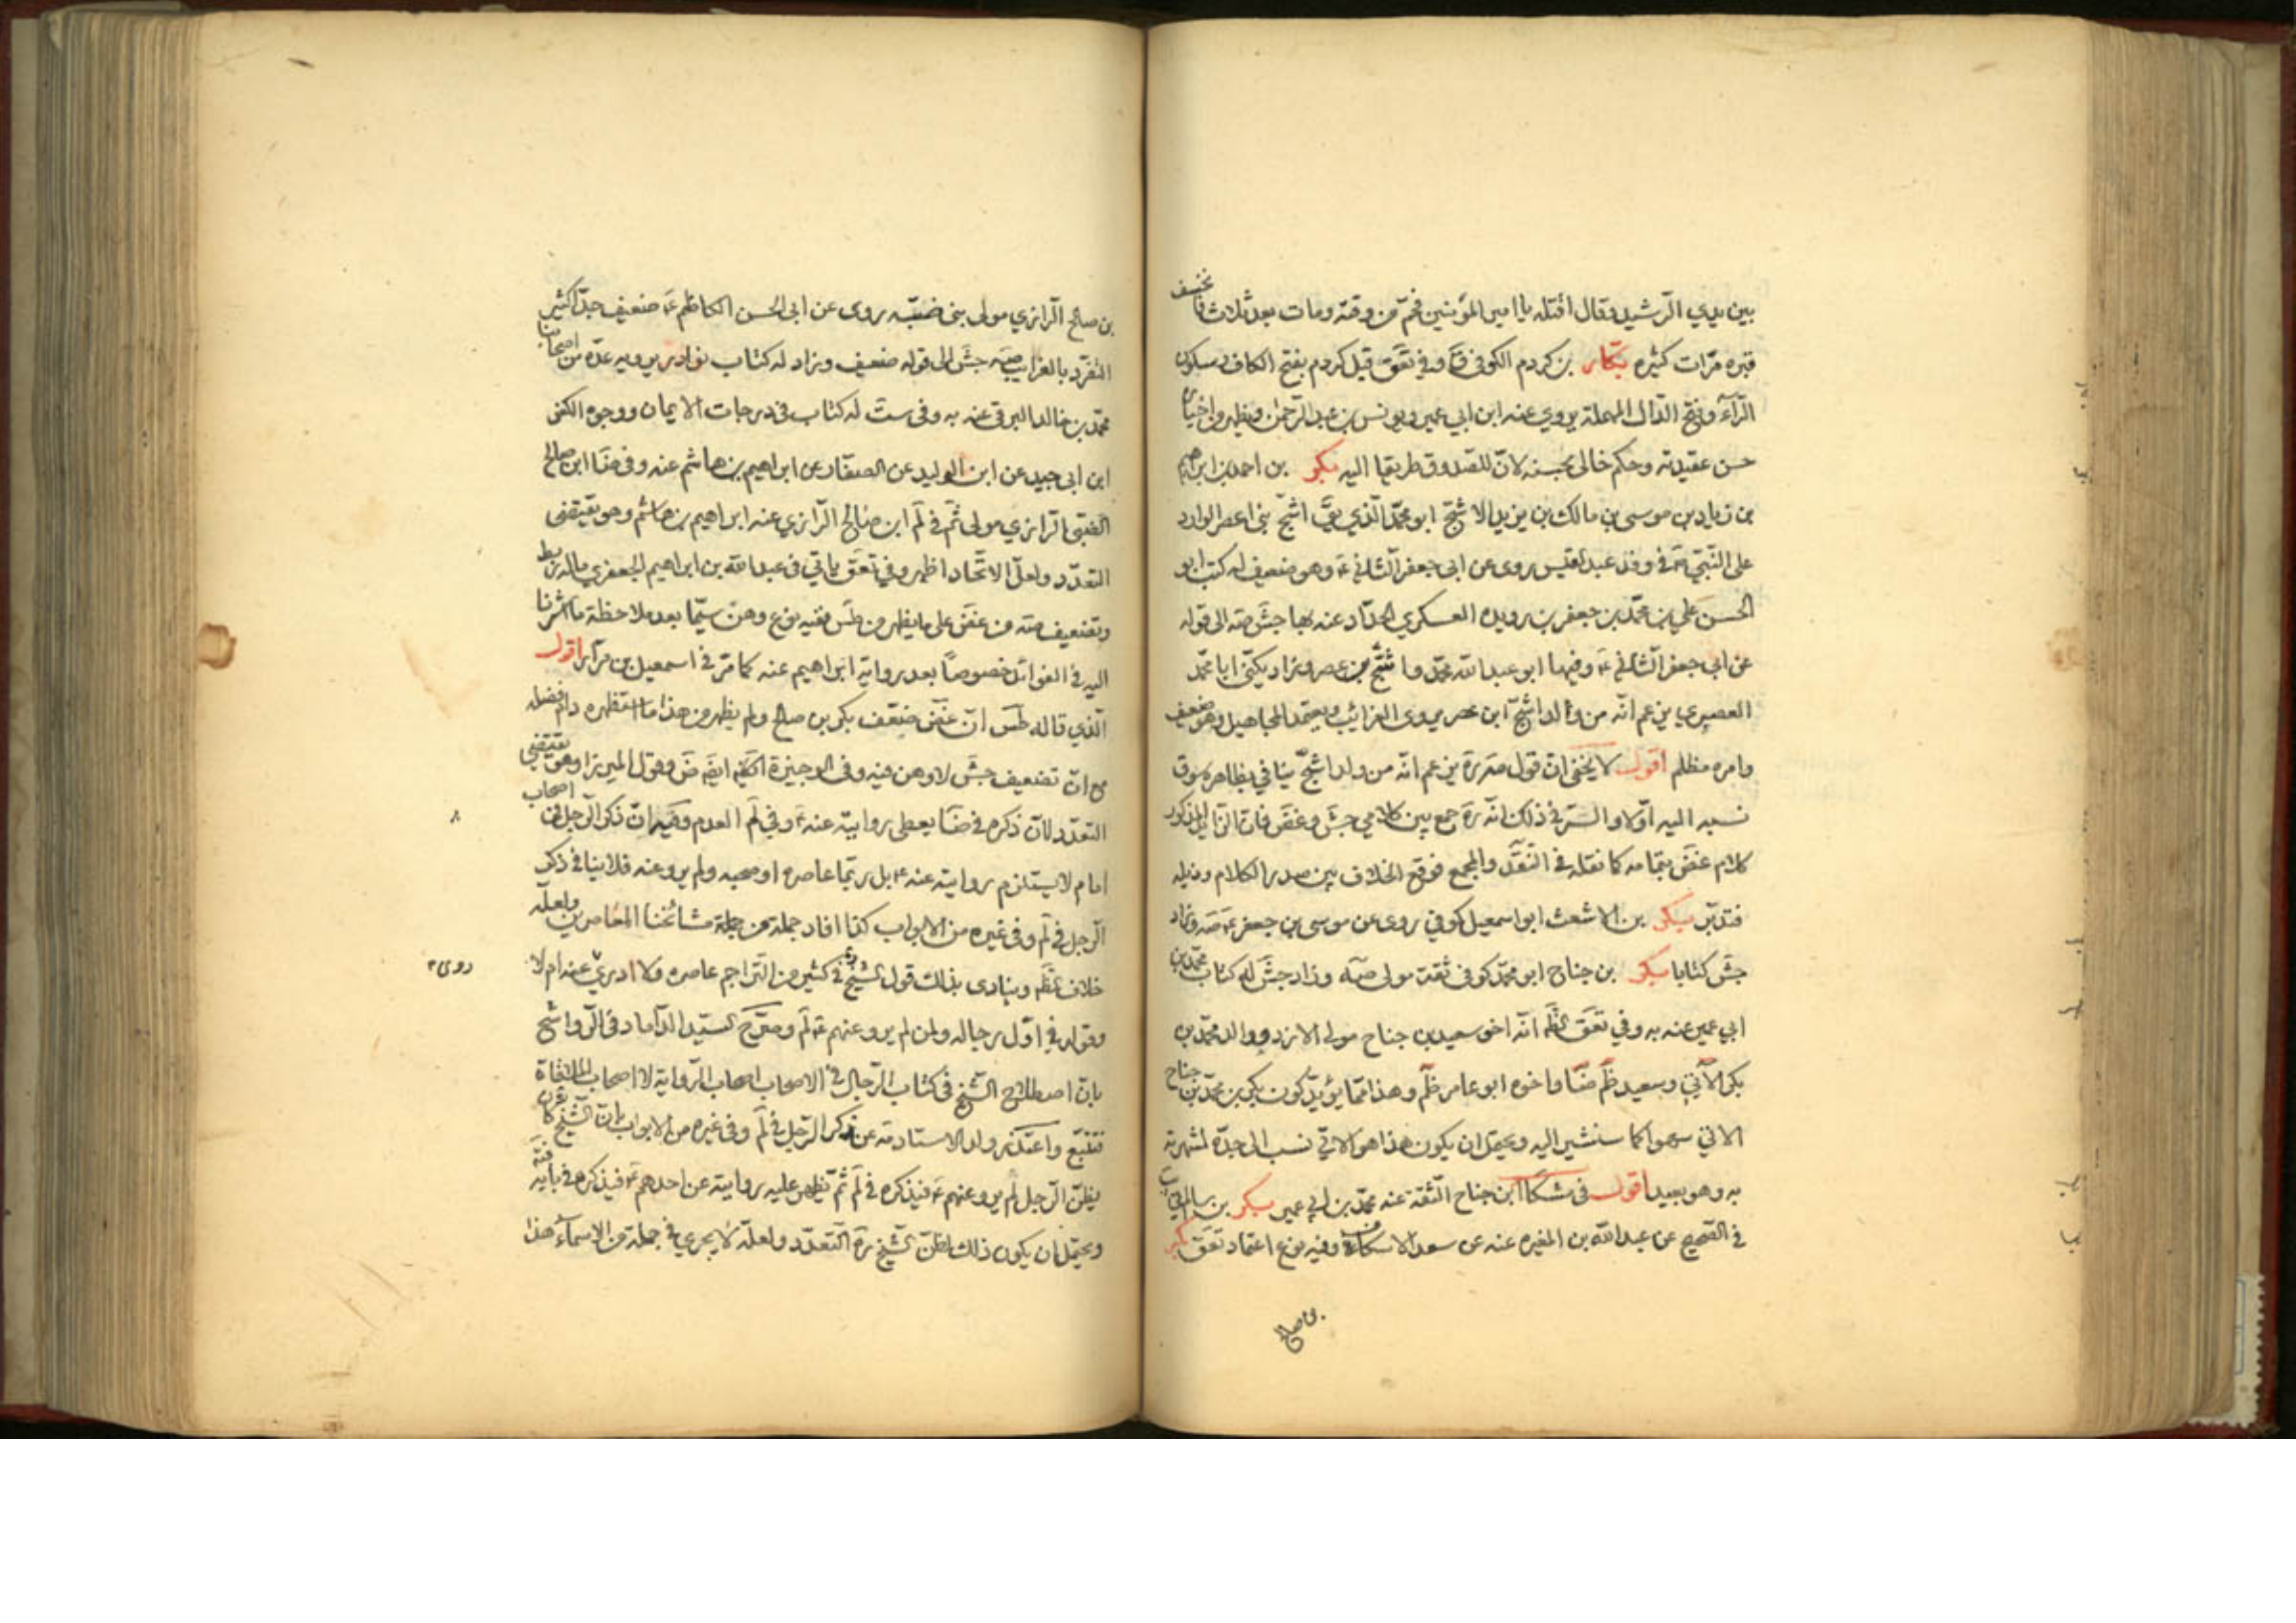 بين يدي الرّشيد وقال أقتله يا امير المؤمنين فحمّ من وقته ومات بعد ثلاث فانخسف
قبره مرّات كثيره بكار بن كردم الكوفي ق وفي تعق قيل كردم بفتح الكاف وسكون
الرّآء وفتح الدّال المهملة يروي عنه ابن ابي عمير ويونس بن عبد الرّحمن ويظهر من اخباره
حسن عقيدته وحكم خالي بحسنه لانّ للصدوق طريقا اليه بكر بن احمد بن ابراهيم
بن زياد بن موسى بن مالك بن يزيد الاشجّ ابو محمّد الّذي اشجّ بني اعصر الوارد
على النّبيّ ص في وفد عبد القيس روى عن ابي جعفر الثّاني ع وهو ضعيف له كتب ابو
الحسن علي بن محمّد بن جعفر بن رويده العسكري الحدّاد عنه بها جش صه الى قوله
عن ابي جعفر الثّاني ع وفيها ابو عبد الله محمّد واشجّ بن عصر وزاد يكنّى ابا محمّد
العصري يزعم انّه من ولد اشجّ ابن عصر يروى الغرائب ويعتمد المجاهيل وهو ضعيف
وامره مظلم اقول لا يخفى انّ قول صه ره يزعم انّه من ولد اشجّ ينافي بظاهره سوق
نسبه اليه اوّلا والسّر في ذلك انّه ره جمع بين كلامي جش وغض فانّ الزّائد المذكور
كلام غض بتمامه كما نقله في النّقد والمجمع فوقع الخلاف بين صدر الكلام وذيله
فتدبّر بكر بن الاشعث ابو اسمعيل كوفي روى عن موسى بن جعفر ع صه وزاد
جش كتابا بكر بن جناح ابو محمّد كوفي ثقة مولى صه وزاد جش له كتاب محمّد بن
ابي عمير عنه به وفي تعق انّه اخو سعيد بن جناح مولى الازد ووالد محمّد بن
بكر الآتي وسعيد ظم ضا واخوه ابو عامر ظم وهذا ممّا يؤيّد كون بكر بن محمّد بن جناح
الاتي سهوا كما سنشير اليه ويحتمل ان يكون هذا هو الاتي نسب الى جدّه لشهرته
به وهو بعيد اقول في مشكا ابن جناح الثّقة عنه محمّد بن ابي عمير بكر بن سالم في
في الصّحيح عن عبد الله بن المغيره عنه عن سعد الاسكاف وفيه نوع اعتماد تعق بكر
بن صالح
بن صالح الرّازي مولى بني ضبّه روى عن ابي الحسن الكاظم ع ضعيف جدّا كثير
التّفرّد بالغرائب صه جش الى قوله ضعيف وزاد له كتاب نوادر يرويه عدّه من اصحابنا
محمّد بن خالد البرقي عنه به وفي ست له كتاب في درجات الايمان ووجوه الكفر
ابن ابي جيد عن ابن الوليد عن الصفّار عن ابراهيم بن هاشم عنه وفي ضا ابن صالح
الضّبي الرّازي مولى ثمّ في لم ابن صالح الرّازي عنه ابراهيم بن هاشم وهو يقتضي
التعدّد ولعلّ الاتّحاد اظهر وفي تعق ياتي في عبد الله بن ابراهيم الجعفري ماله ربط
وتضعيف صه من غض على ما يظهر من طس ففيه نوع وهن سيّما بعد ملاحظة ما اشرنا
اليه في الفوائد خصوصًا بعد رواية ابراهيم عنه كما مرّ في اسمعيل بن مرّار اقول
الّذي قاله طس انّ غض ضعّف بكر بن صالح ولم يظهر من هذا ما استظهره دام فضله
مع انّ تضعيف جش لا وهن فيه وفي الوجيزة ايضا ض وقول الميرزا وهو يقتضي
التعدّد لانّ ذكره في ضا يعطي روايته عنه ع وفي لم العدم وفيه انّ ذكر الرّجل في اصحاب
امام لا يستلزم روايته عنه ع بل ربّما عاصره او صحبه ولم يرو عنه فلا ينافي ذكر
الرّجل في لم وفي غيره من الابواب كذا افاد جملة من جلّة مشائخنا المعاصرين ولعلّه
خلاف وينادى بذلك قول الشّيخ ره في كثير من التّراجم عاصره ولا ادري عنه ام لا
روى
وقوله في اوّل رجاله ولمن لم يرو عنهم ع لم وصرّح السيّد الدّاماد في الرّواشح
بانّ اصطلاح الشّيخ في كتاب الرّجال في الاصحاب اصحاب الرّواية لا اصحاب الملاقاة
فتتبّع واعتذر ولد الاستاد مه عن ذكر الرّجل في لم وفي غيره من الابواب بانّ الشّيخ كان
يظنّ الرّجل لم يرو عنهم ع فيذكره في لم ثمّ تظهر عليه روايته عن احدهم ع فيذكره في بابه
ويحتمل ان يكون ذلك لظنّ الشّيخ ره التّعدّد ولعلّه لا يجري في جملة من الاسمآء هذا